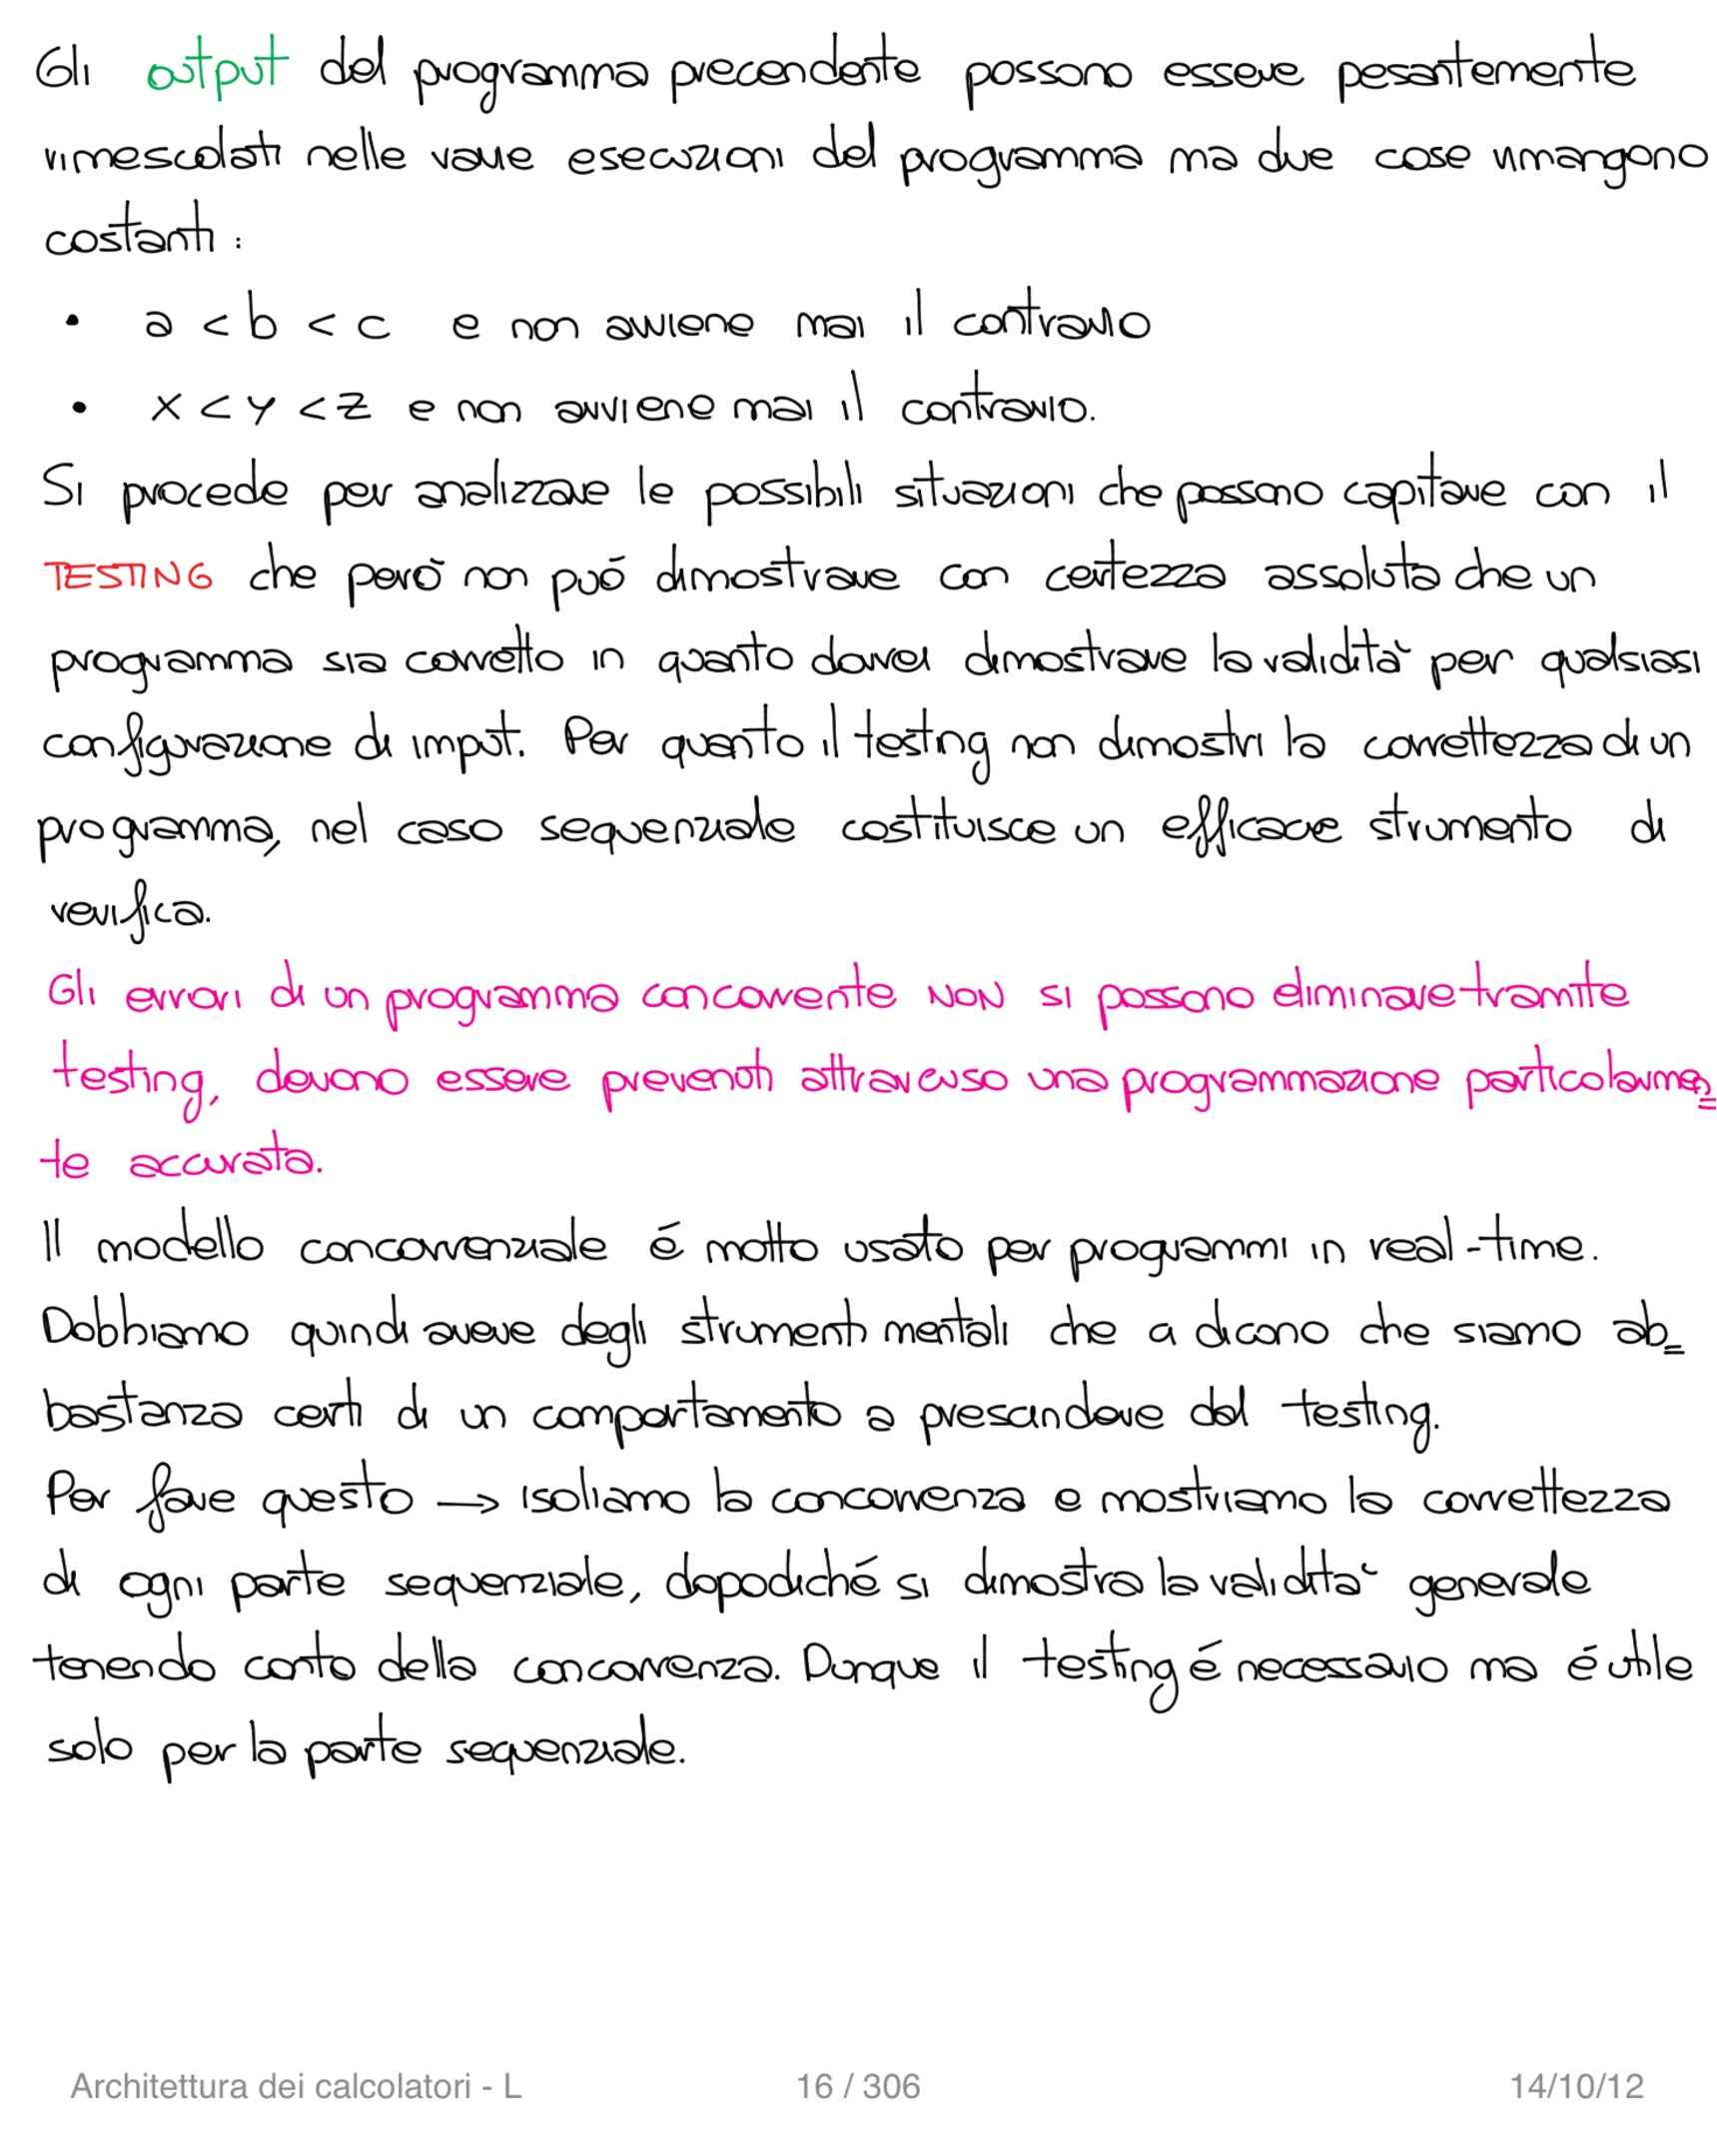 Gli output del programma precendente possono essere pesantemente
rimescolati nelle varie esecuzioni del programma ma due cose rimangono
costanti:
• a < b < c e non avviene mai il contrario
• x < y < z e non avviene mai il contrario.
Si procede per analizzare le possibili situazioni che possono capitare con il
TESTING che però non può dimostrare con certezza assoluta che un
programma sia corretto in quanto dovrei dimostrare la validità per qualsiasi
configurazione di imput. Per quanto il testing non dimostri la correttezza di un
programma, nel caso sequenziale costituisce un efficace strumento di
verifica.
Gli errori di un programma concorrente NON si possono eliminare tramite
testing, devono essere prevenuti attraverso una programmazione particolarmen=
te accurata.
Il modello concorrenziale é molto usato per programmi in real-time.
Dobbiamo quindi avere degli strumenti mentali che ci dicono che siamo ab=
bastanza certi di un comportamento a prescindere dal testing.
Per fare questo → isoliamo la concorrenza e mostriamo la correttezza
di ogni parte sequenziale, dopodiché si dimostra la validità generale
tenendo conto della concorrenza. Dunque il testing é necessario ma é utile
solo per la parte sequenziale.
Architettura dei calcolatori - L 16 / 306 14/10/12